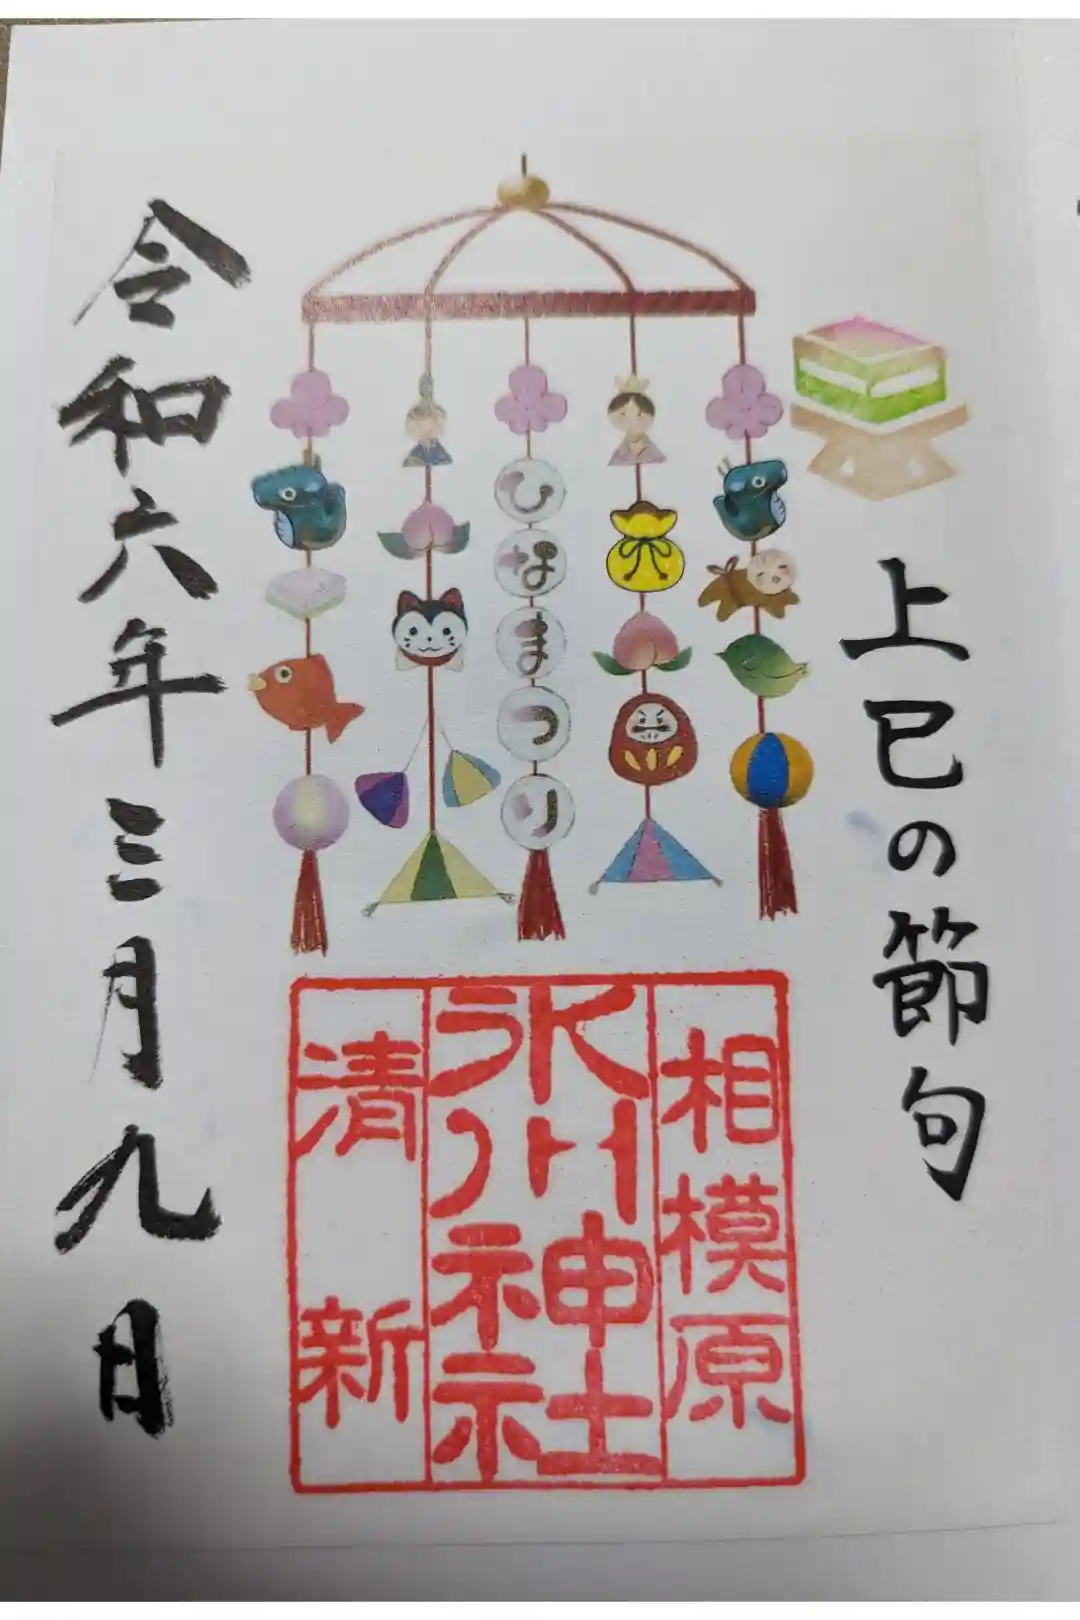 上巳の節句
ひなまつり
相模原
氷川神社
清新
令和六年三月九日